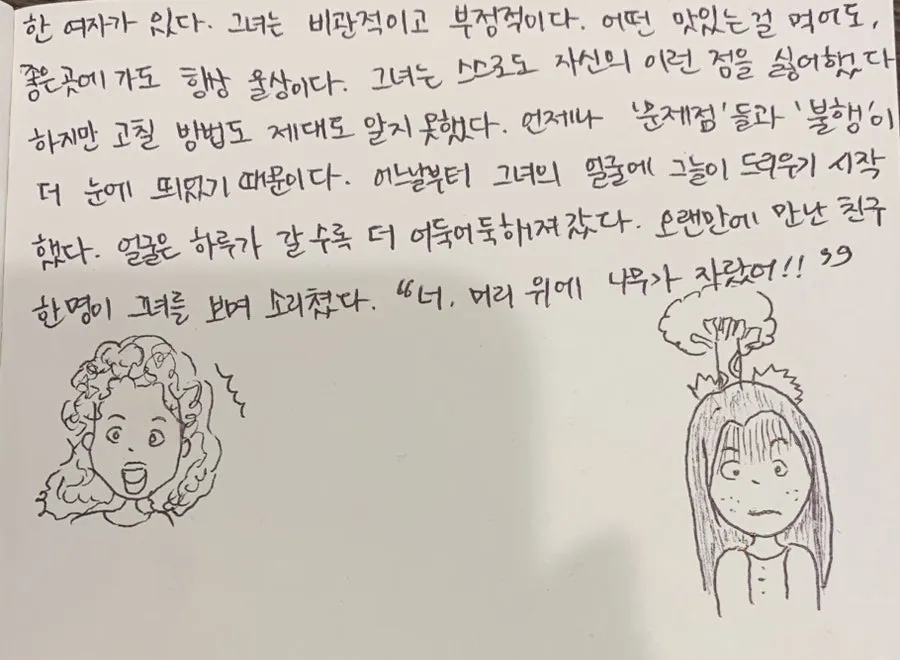 한 여자가 있다. 그녀는 비관적이고 부정적이다. 어떤 맛있는걸 먹어도,
좋은곳에 가도 항상 울상이다. 그녀는 스스로도 자신의 이런 점을 싫어했다
하지만 고칠 방법도 제대로 알지 못했다. 언제나 '문제점'들과 '불행'이
더 눈에 띄었기 때문이다. 어느날부터 그녀의 얼굴에 그늘이 드리우기 시작
했다. 얼굴은 하루가 갈수록 더 어둑어둑해져갔다. 오랜만에 만난 친구
한명이 그녀를 보며 소리쳤다. "너, 머리 위에 나무가 자랐어!! "